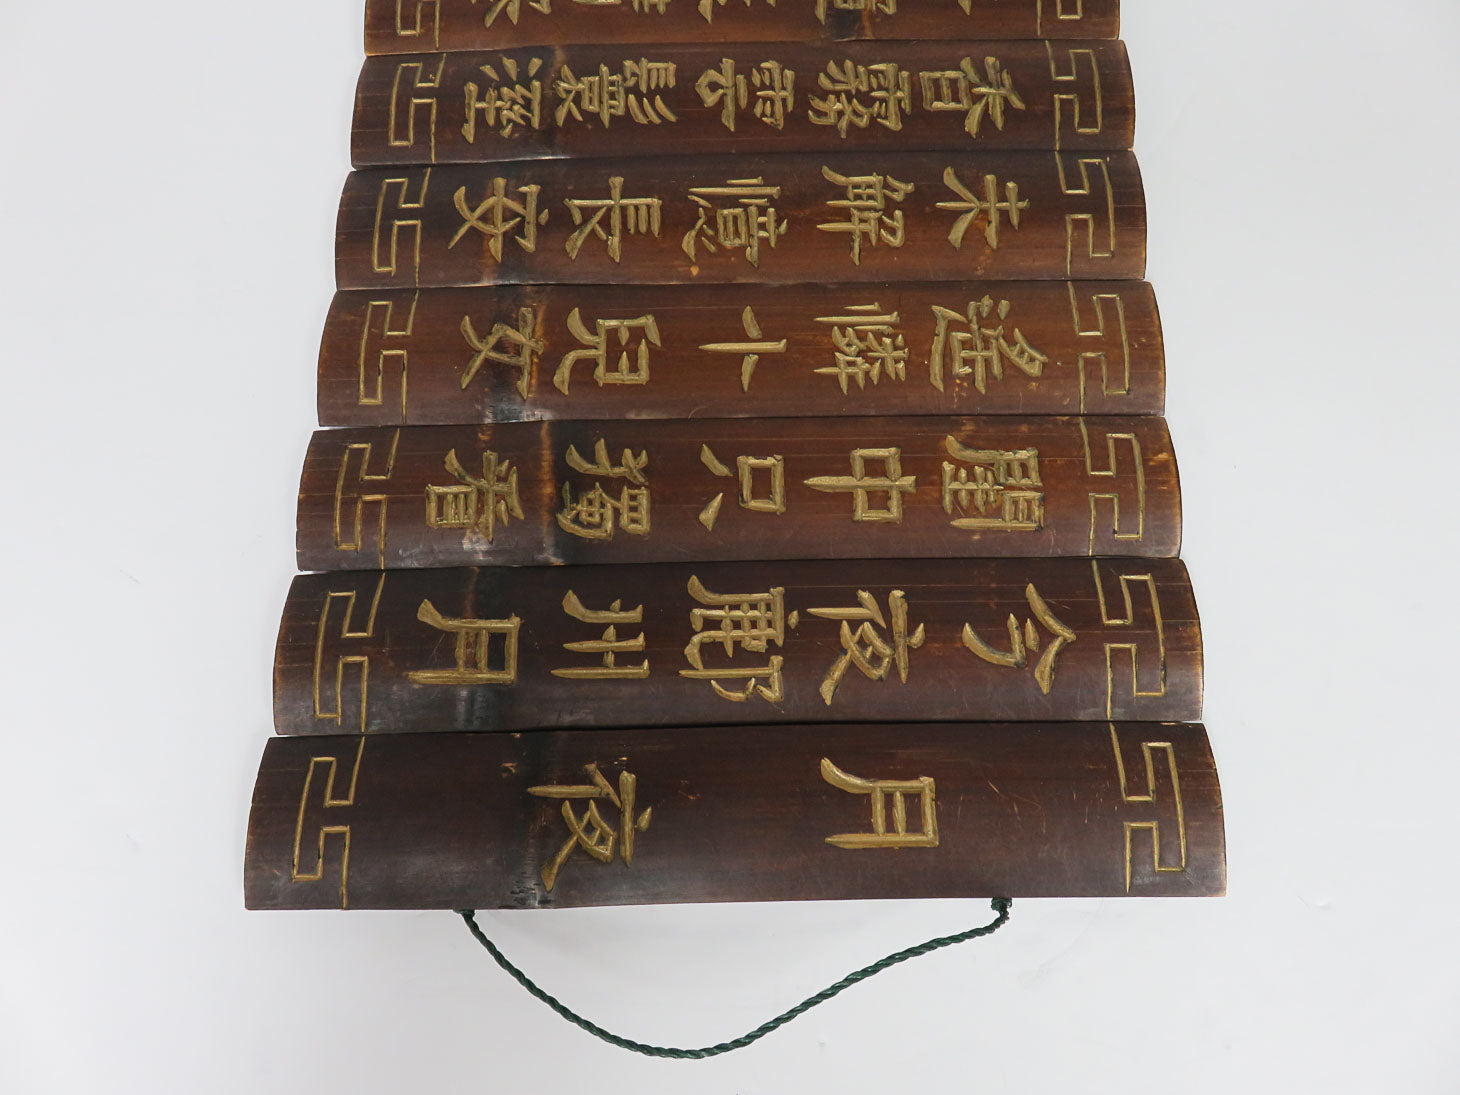 月夜
今夜鄜州月
閨中只獨看
遙憐小兒女
未解憶長安
香霧雲鬟溼